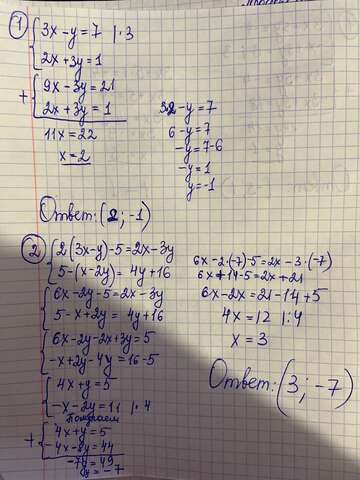 ① 3x - y = 7 | · 3
2x + 3y = 1
+ 9x - 3y = 21
2x + 3y = 1
11x = 22
x = 2
3·2 - y = 7
6 - y = 7
-y = 7-6
-y = 1
y = -1
Ответ: (2 ; -1)
② 2(3x-y)-5=2x-3y
5-(x-2y)= 4y+16
6x-2y-5=2x-3y
5-x+2y= 4y+16
6x-2y-2x+3y=5
-x+2y-4y=16-5
4x+y=5
-x-2y=11 | · 4
Получаем
+ 4x+y=5
-4x-8y=44
-7y=49
y=-7
6x-2·(-7)-5=2x-3·(-7)
6x+14-5=2x+21
6x-2x=21-14+5
4x=12 | :4
x=3
Ответ: (3 ; -7)